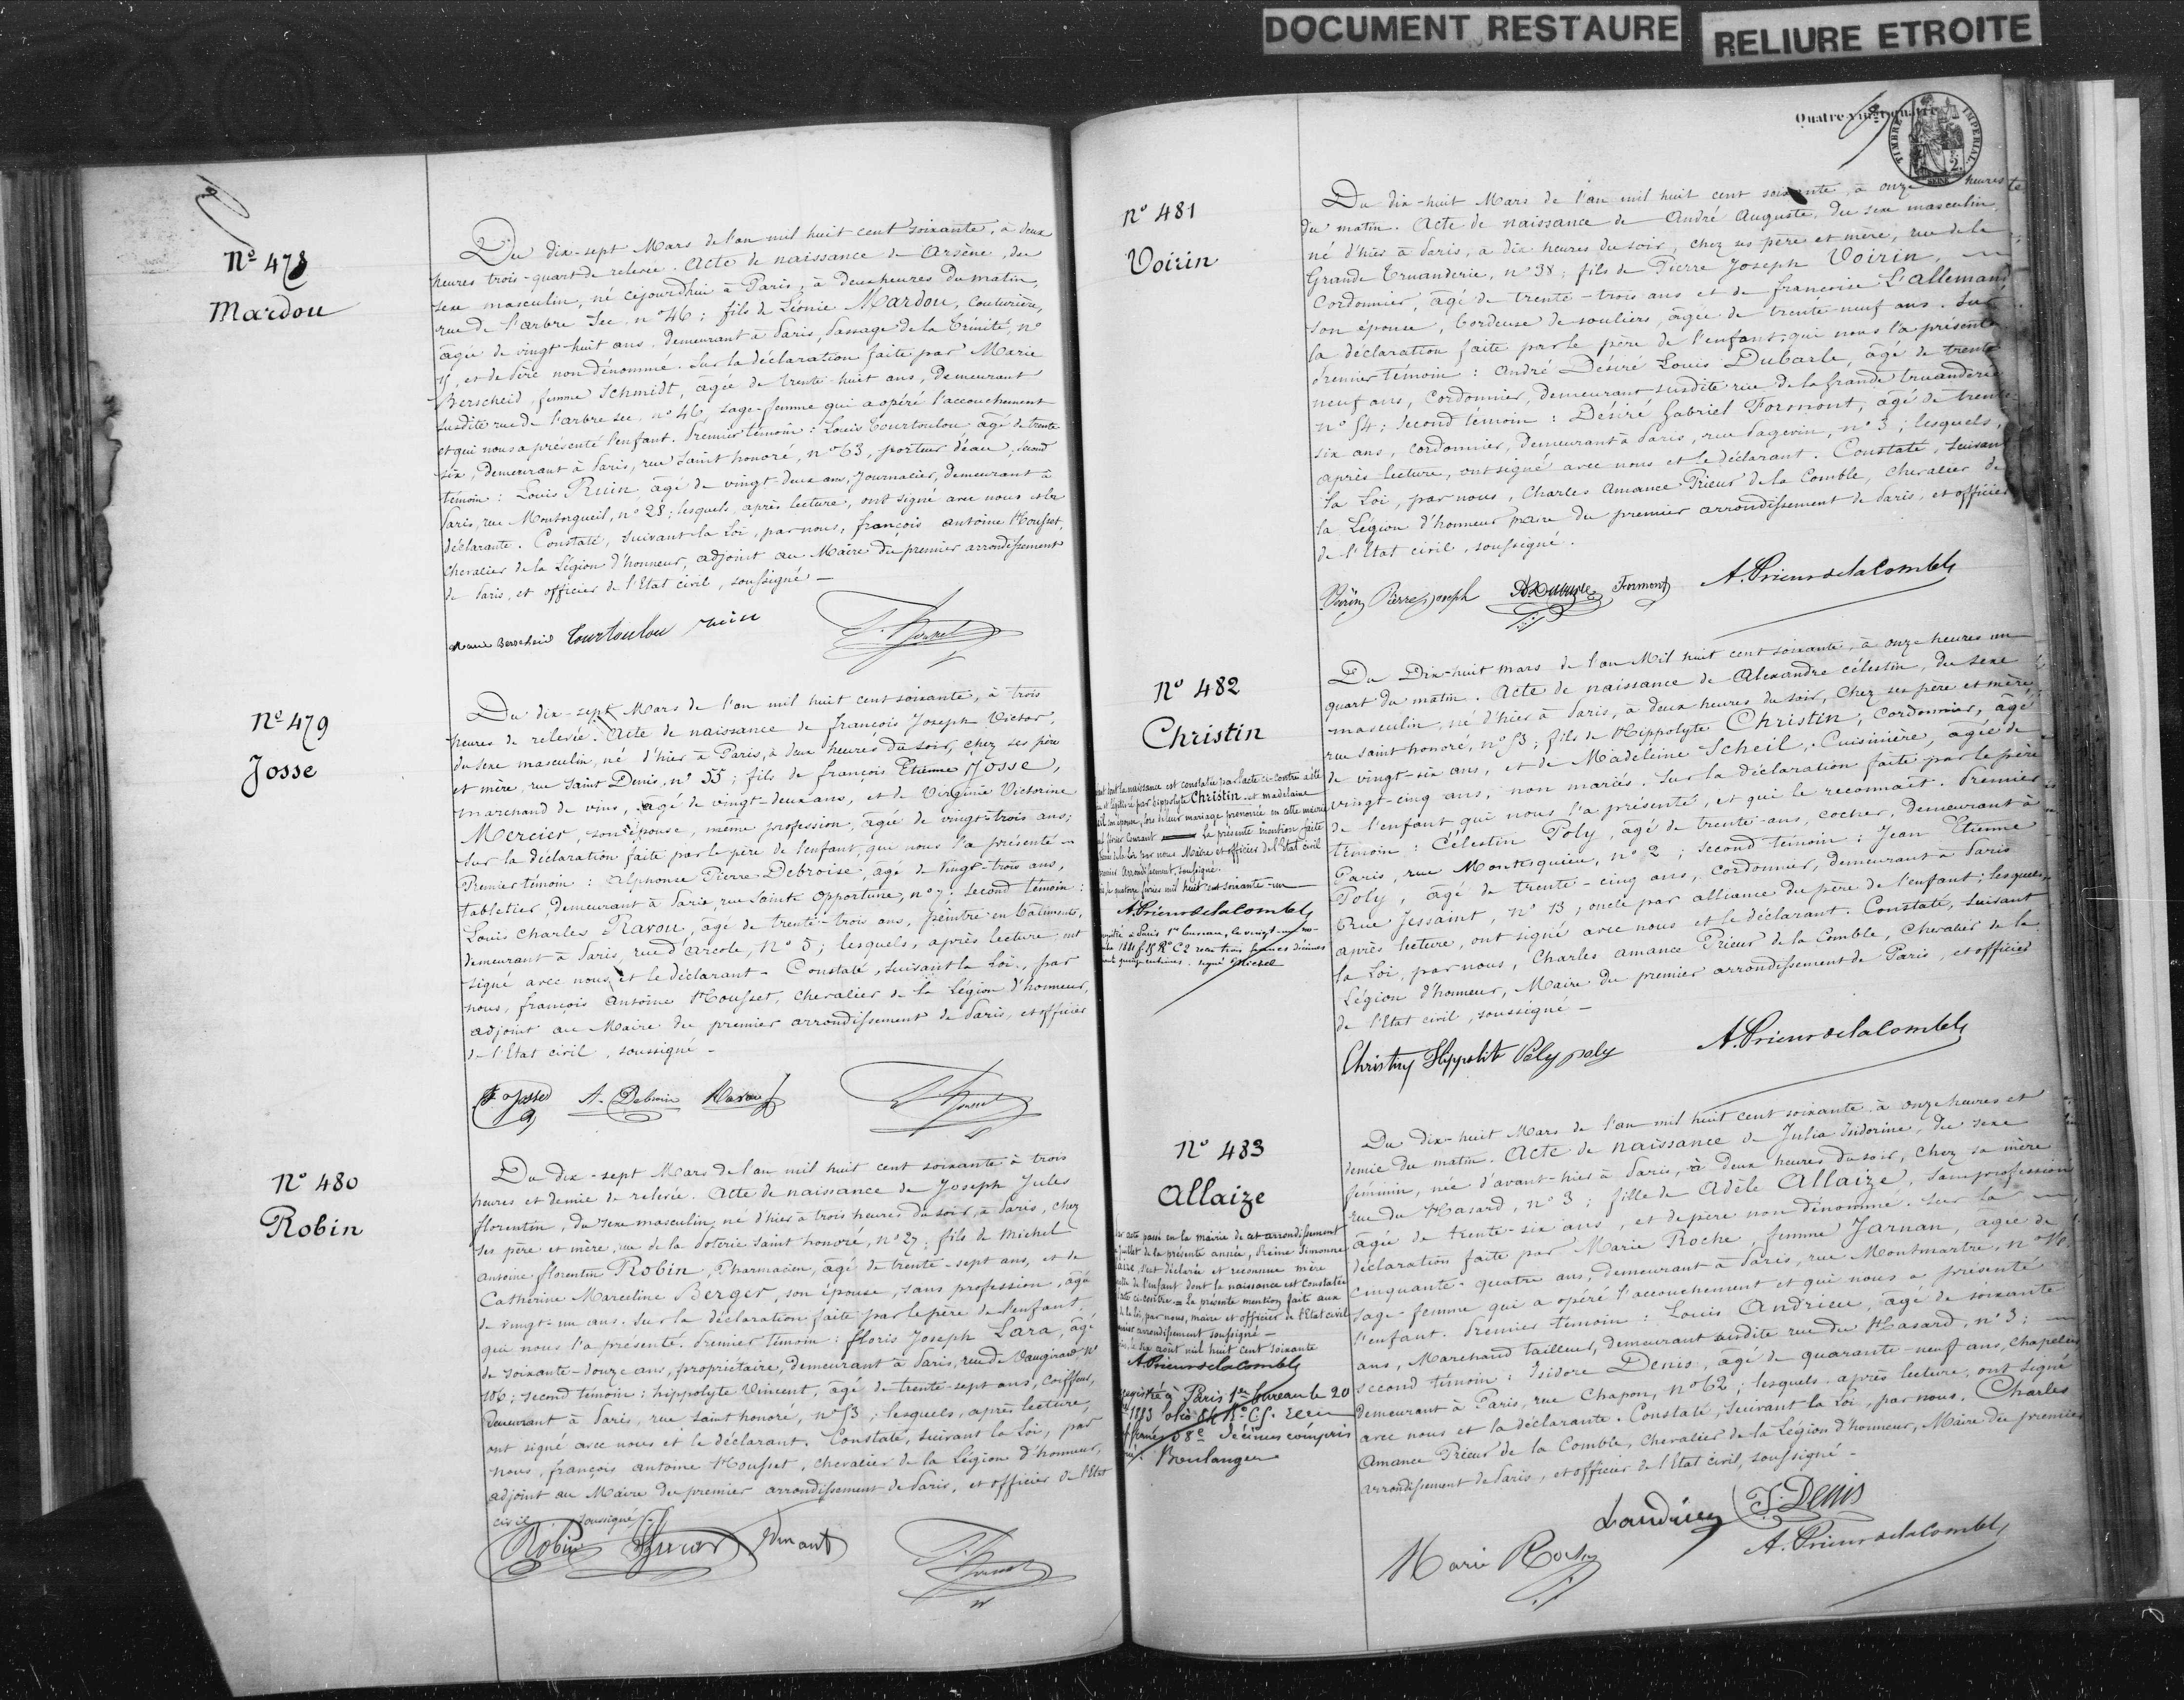 DOCUMENT RESTAURE
RELIURE ETROITE
Nº 478
Mardou
Du dix-sept Mars de l'an mil huit cent soixante, à deux
heures trois-quart de relevée. Acte de naissance de Arsène, du
sexe masculin, né cejourd'hui à Paris, à deux heures du matin,
rue de l'arbre Sec, nº 46; fils de Léonie Mardou, couturière,
âgée de vingt-huit ans, demeurant à Paris, passage de la Trinité, nº
15, et de père non dénommé. Sur la déclaration faite par Marie
Berscheid, femme Schmidt, âgée de trente-huit ans, demeurant
susdite rue de l'arbre sec, nº 46, sage-femme qui a opéré l'accouchement
et qui nous a présenté l'enfant. Premier témoin: Louis Tourtoulou âgé de trente
six, demeurant à Paris, rue Saint honoré, nº 63, porteur d'eau; second
témoin: Louis Ruin, âgé de vingt-deux ans, journalier, demeurant à
Paris, rue Montorgueil, nº 28; lesquels, après lecture, ont signé avec nous et la
déclarante. Constaté, suivant la Loi, par nous, françois antoine Housset,
chevalier de la Légion d'honneur, adjoint au Maire du premier arrondissement
de Paris, et officier de l'Etat civil, soussigné —
Marie Berscheid Tourtoulou ruin
Nº 479
Josse
Du dix-sept Mars de l'an mil huit cent soixante, à trois
heures de relevée. Acte de naissance de françois Joseph Victor,
du sexe masculin, né d'hier à Paris, à deux heures du soir, chez ses père
et mère, rue Saint Denis, nº 55; fils de françois Etienne Josse,
marchand de vins, âgé de vingt-deux ans, et de Virginie Victorine
Mercier, son épouse, même profession, âgée de vingt-trois ans;
sur la déclaration faite par le père de l'enfant, qui nous l'a présenté —
Premier témoin: Alphonse Pierre Debroise, âgé de vingt-trois ans,
tabletier, demeurant à Paris, rue Sainte Opportune, nº 7; second témoin:
Louis Charles Ravou, âgé de trente-trois ans, peintre en bâtiments,
demeurant à Paris, rue d'arcole, nº 5; lesquels, après lecture, ont
signé avec nous et le déclarant. Constaté, suivant la Loi, par
nous, françois Antoine Housset, chevalier de la Légion d'honneur,
adjoint au Maire du premier arrondissement de Paris, et officier
de l'Etat civil, soussigné —
F. Josse A. Debroise Ravou
Nº 480
Robin
Du dix-sept Mars de l'an mil huit cent soixante à trois
heures et demie de relevée. Acte de naissance de Joseph Jules
florentin, du sexe masculin, né d'hier à trois heures du soir, à Paris, chez
ses père et mère, rue de la Poterie saint honoré, nº 27; fils de Michel
antoine florentin Robin, Pharmacien, âgé de trente-sept ans, et de
Catherine Marceline Berger, son épouse, sans profession, âgée
de vingt-un ans. Sur la déclaration faite par le père de l'enfant
qui nous l'a présenté. Premier témoin: floris Joseph Lara, âgé
de soixante-douze ans, propriétaire, demeurant à Paris, rue de Vaugirard, nº
106; second témoin: hippolyte Vincent, âgé de trente-sept ans, coiffeur,
demeurant à Paris, rue saint honoré, nº 53; lesquels, après lecture,
ont signé avec nous et le déclarant. Constaté, suivant la Loi, par
nous, françois antoine Housset, chevalier de la Légion d'honneur,
adjoint au Maire du premier arrondissement de Paris, et officier de l'Etat
civil, soussigné
Robin
Quatre-vingt-quatre
TIMBRE IMPERIAL
SEINE
Nº 481
Voirin
Du dix-huit Mars de l'an mil huit cent soixante, à onze heures
du matin. Acte de naissance de André Auguste, du sexe masculin,
né d'hier à Paris, à dix heures du soir, chez ses père et mère, rue de la
Grande Truanderie, nº 38; fils de Pierre Joseph Voirin,
Cordonnier, âgé de trente-trois ans et de françoise L'allemand
son épouse, bordeuse de souliers, âgée de trente-neuf ans. Sur
la déclaration faite par le père de l'enfant, qui nous l'a présenté
Premier témoin: André Désiré Louis Dubarle, âgé de trente
neuf ans, Cordonnier, demeurant susdite rue de la grande truanderie
nº 54; Second témoin: Désiré Gabriel Formont, âgé de trente
six ans, Cordonnier, demeurant à Paris, rue Sagerin, nº 3; lesquels,
après lecture, ont signé avec nous et le déclarant. Constaté, suivant
la Loi, par nous, Charles Amance Prieur de la Comble, Chevalier de
la Légion d'honneur, Maire du premier arrondissement de Paris, et officier
de l'Etat civil, soussigné.
Voirin Pierre joseph Formont A. Prieur de la Comble
Nº 482
Christin
Du Dix-huit mars de l'an Mil huit cent soixante, à onze heures un
quart du matin. Acte de naissance de Alexandre célestin, du sexe
masculin, né d'hier à Paris, à deux heures du soir, chez ses père et mère
rue saint honoré, nº 53; fils de Hippolyte Christin, Cordonnier, âgé
de vingt-six ans, et de Madeleine Scheil, Cuisinière, âgée de
vingt-cinq ans, non mariés. Sur la déclaration faite par le père
de l'enfant qui nous l'a présenté, et qui le reconnait. Premier
témoin: Célestin Poly, âgé de trente-ans, cocher, demeurant à
Paris, rue Montesquieu, nº 2; second témoin: Jean Etienne
Poly, âgé de trente-cinq ans, cordonnier, demeurant à Paris
rue Jessaint, nº 13, oncle par alliance du père de l'enfant; lesquels,
après lecture, ont signé avec nous et le déclarant. Constaté, suivant
la Loi, par nous, Charles amance Prieur de la Comble, Chevalier de la
Légion d'honneur, Maire du premier arrondissement de Paris, et officier
de l'Etat civil, soussigné —
dont la naissance est constatée par l'acte ci-contre a été
et légitimé par hippolyte Christin et madelaine
son épouse, lors de leur mariage prononcé en cette mairie
février Courant — La présente mention faite
de la loi par nous Maire et officier de l'Etat civil
arrondissement, soussigné.
le quatorze février mil huit cent soixante-un
A. Prieur de la Comble
à Paris 1er bureau, le vingt-un
1881 fº 58 Rº C 2 reçu trois francs décimes
quinze centimes. signé Michel
Christin Hyppolite Poly poly A. Prieur de la Comble
Nº 483
Allaize
Du dix-huit Mars de l'an mil huit cent soixante, à onze heures et
demie du matin. Acte de naissance de Julia Isidorine, du sexe
féminin, née d'avant-hier à Paris, à deux heures du soir, chez sa mère
rue du Hasard, nº 3; fille de Adèle Allaize, sans profession
âgée de trente-six ans, et de père non dénommé. Sur la
déclaration faite par Marie Roche, femme Jarnan, âgée de
cinquante-quatre ans, demeurant à Paris, rue Montmartre, nº
sage-femme qui a opéré l'accouchement et qui nous a présenté
l'enfant. Premier témoin: Louis Andrieu, âgé de soixante
ans, Marchand tailleur, demeurant susdite rue du Hasard, nº 3;
second témoin: Isidore Denis, âgé de quarante-neuf ans, Chapelier
demeurant à Paris, rue Chapon, nº 62; lesquels, après lecture, ont signé
avec nous et la déclarante. Constaté, suivant la Loi, par nous, Charles
Amance Prieur de la Comble, Chevalier de la Légion d'honneur, Maire du premier
arrondissement de Paris, et officier de l'Etat civil, soussigné —
acte passé en la mairie de cet arrondissement
juillet de la présente année, Reine Simonne
s'est déclarée et reconnue mère
de l'enfant dont la naissance est constatée
ci-contre. — La présente mention faite aux
de la loi, par nous, maire et officier de l'Etat civil
arrondissement soussigné —
août mil huit cent soixante
A. Prieur de la Comble
à Paris 1er bureau le 20
décimes compris
Boulanger
Landrieu I. Denis
Marie Roche A. Prieur de la Comble